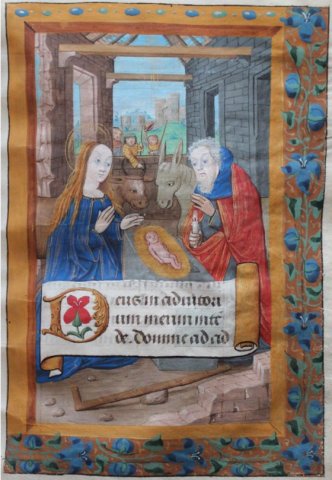 Deus in adiutori
um meum intē
de. Domine ad ad